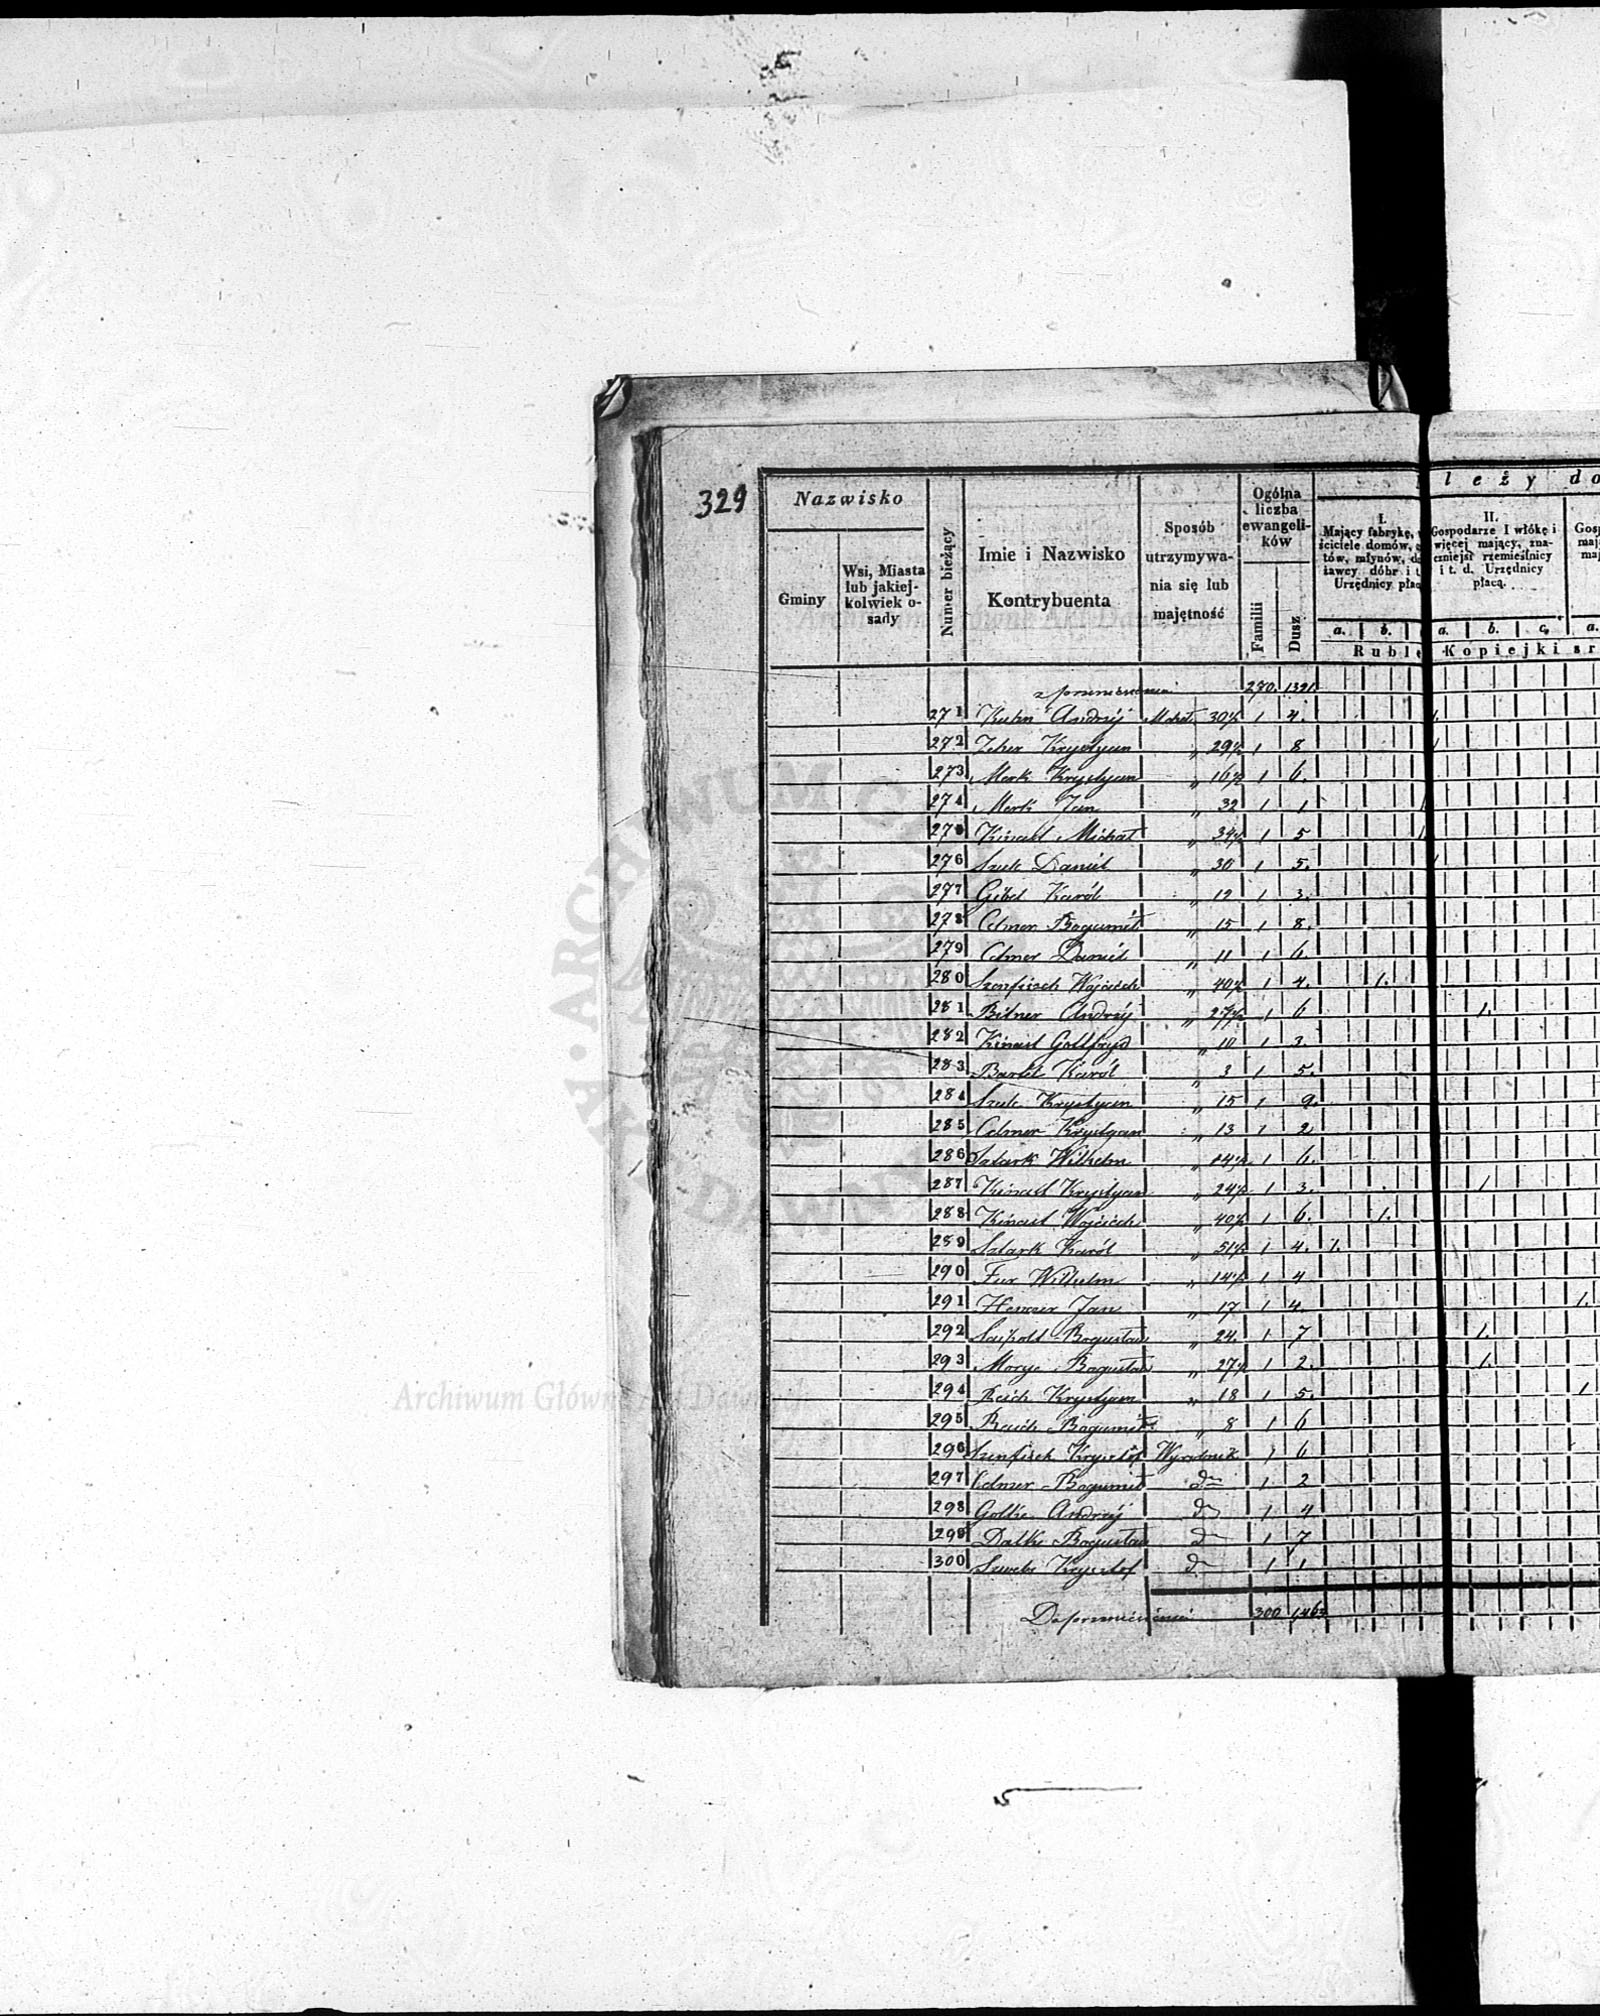 329
Nazwisko
Gminy
Wsi, Miasta
lub jakiej-
kolwiek o-
sady
Numer bieżący
Imie i Nazwisko
Kontrybuenta
Sposób
utrzymywa-
nia się lub
majętność
Ogólna
liczba
ewangeli-
ków
Familii
Dusz
leży do
I.
Mający fabrykę,
ściciele domów,
tów, młynów,
żawcy dóbr i
Urzędnicy
II.
Gospodarze I włókę i
więcej mający, zna-
czniejsi rzemieślnicy
i t. d. Urzędnicy
płacą.
a. b. a. b. c. a.
Ruble Kopiejki sr
z przeniesienia 270. 1321.
271 Kuhn Andrzéj 30½ 1 4. 1.
272 Krystyan " 29½ 1 8 1
273 Mark Krystyan " 16½ 1 6.
274 Mark Jan " 32 1 1
275 Kinast Michał " 34½ 1 5
276 Szulc Daniel " 30 1 5.
277 Gibel Karól " 12 1 3.
278 Celmer Bogumił " 15 1 8.
279 Celmer Daniel " 11 1 6.
280 Szenfisch Wojciech " 40½ 1 4. 1.
281 Bitner Andrzéj " 27½ 1 6 1.
282 Kinast Gottfryd " 10 1 3.
283 Bartel Karól " 3 1 5.
284 Szulc Krystyan " 15 1 9.
285 Celmer Krystyan " 13 1 2
286 Sztark Wilhelm " 1 6.
287 Kinast Krystyan " 24½ 1 3. 1
288 Kinast Wojciech " 40½ 1 6. 1.
289 Sztark Karól " 51½ 1 4. 1.
290 Wilhelm " 14½ 1 4
291 Jan " 17 1 4. 1.
292 Bogusław " 24. 1 7 1.
293 Bogusław " 27½ 1 2. 1.
294 Krystyan " 18 1 5. 1
295 Bogumił " 8 1 6
296 Szenfisch Krysztof Wyrobnik 1 6
297 Celmer Bogumił d° 1 2
298 Golke Andrzéj d° 1 4
299 Dalke Bogusław d° 1 7
300 Krysztof d° 1 1
Do przeniesienia 300 1463
ARCHIWUM GŁÓWNE AKT DAWNYCH
Archiwum Główne Akt Dawnych
Archiwum Główne Akt Dawnych